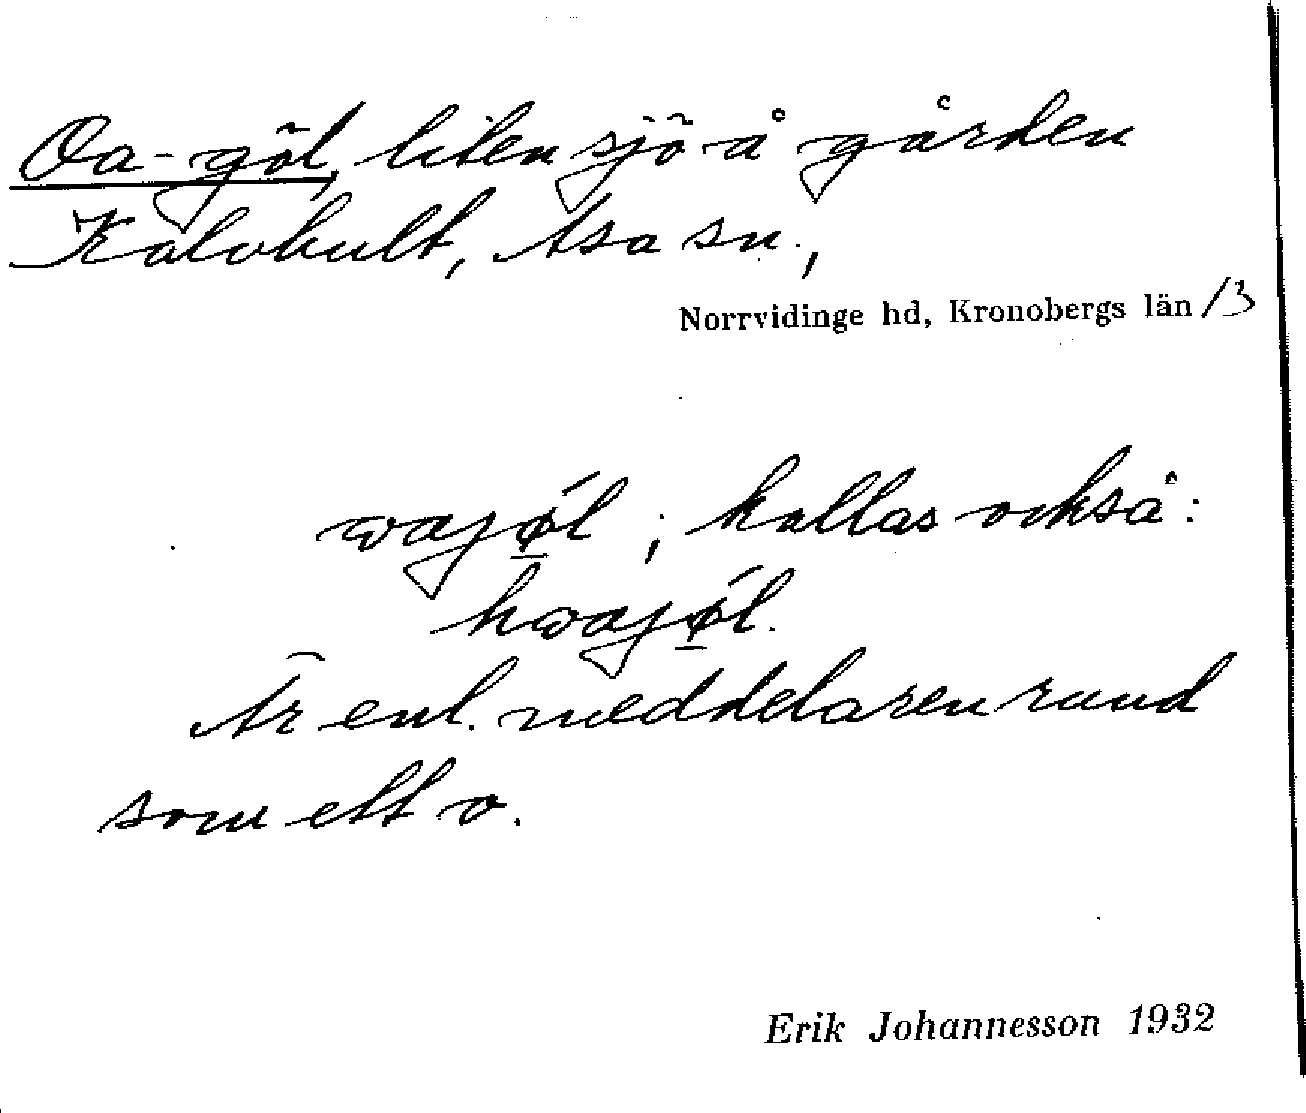 Oa-göl, liten sjö å gården
Kalvhult, Asa sn.,
Norrvidinge hd, Kronobergs län /3
wajǿ̲l ; kallas också:
hwajǿ̲l.
Är enl. meddelaren rund
som ett o.
Erik Johannesson 1932